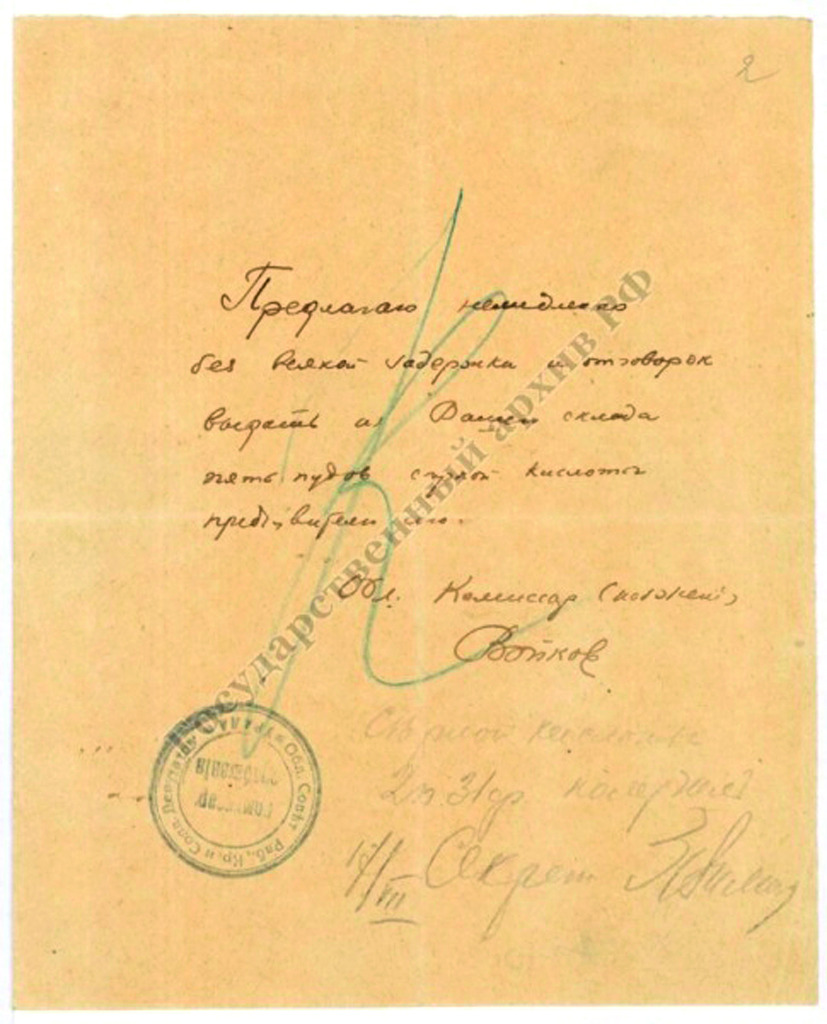 2
Предлагаю немедленно
без всякой задержки и отговорок
выдать из Вашего склада
пять пудов серной кислоты
предъявителю сего.
Обл. Комиссар Снабжения
Войков
Серной кислоты
2 п 31 ф
17/VII Секрет
Обл. Совѣт Раб., Кр. и Солд. Депутатов УРАЛА
Комиссар
снабжения
Государственный архив РФ